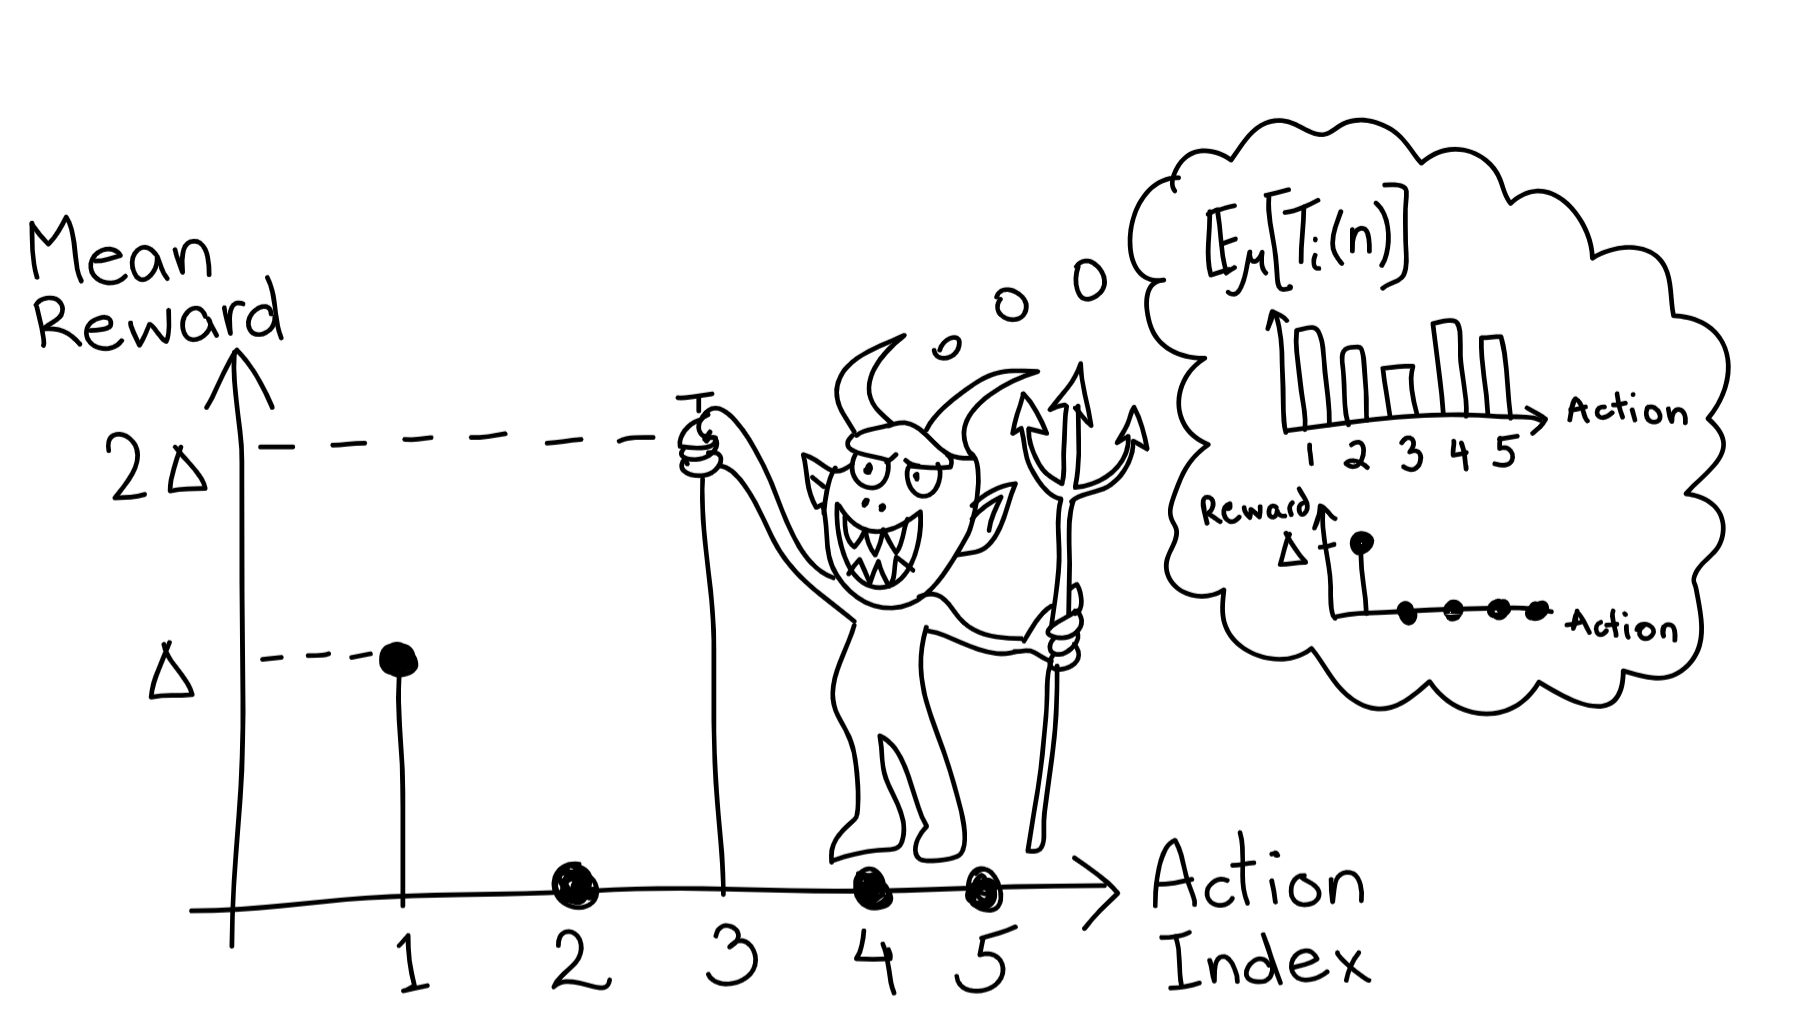 Mean
Reward
2Δ
Δ
1 2 3 4 5
Action
Index
𝔼μ[Tᵢ(n)]
Action
1 2 3 4 5
Reward
Δ
Action